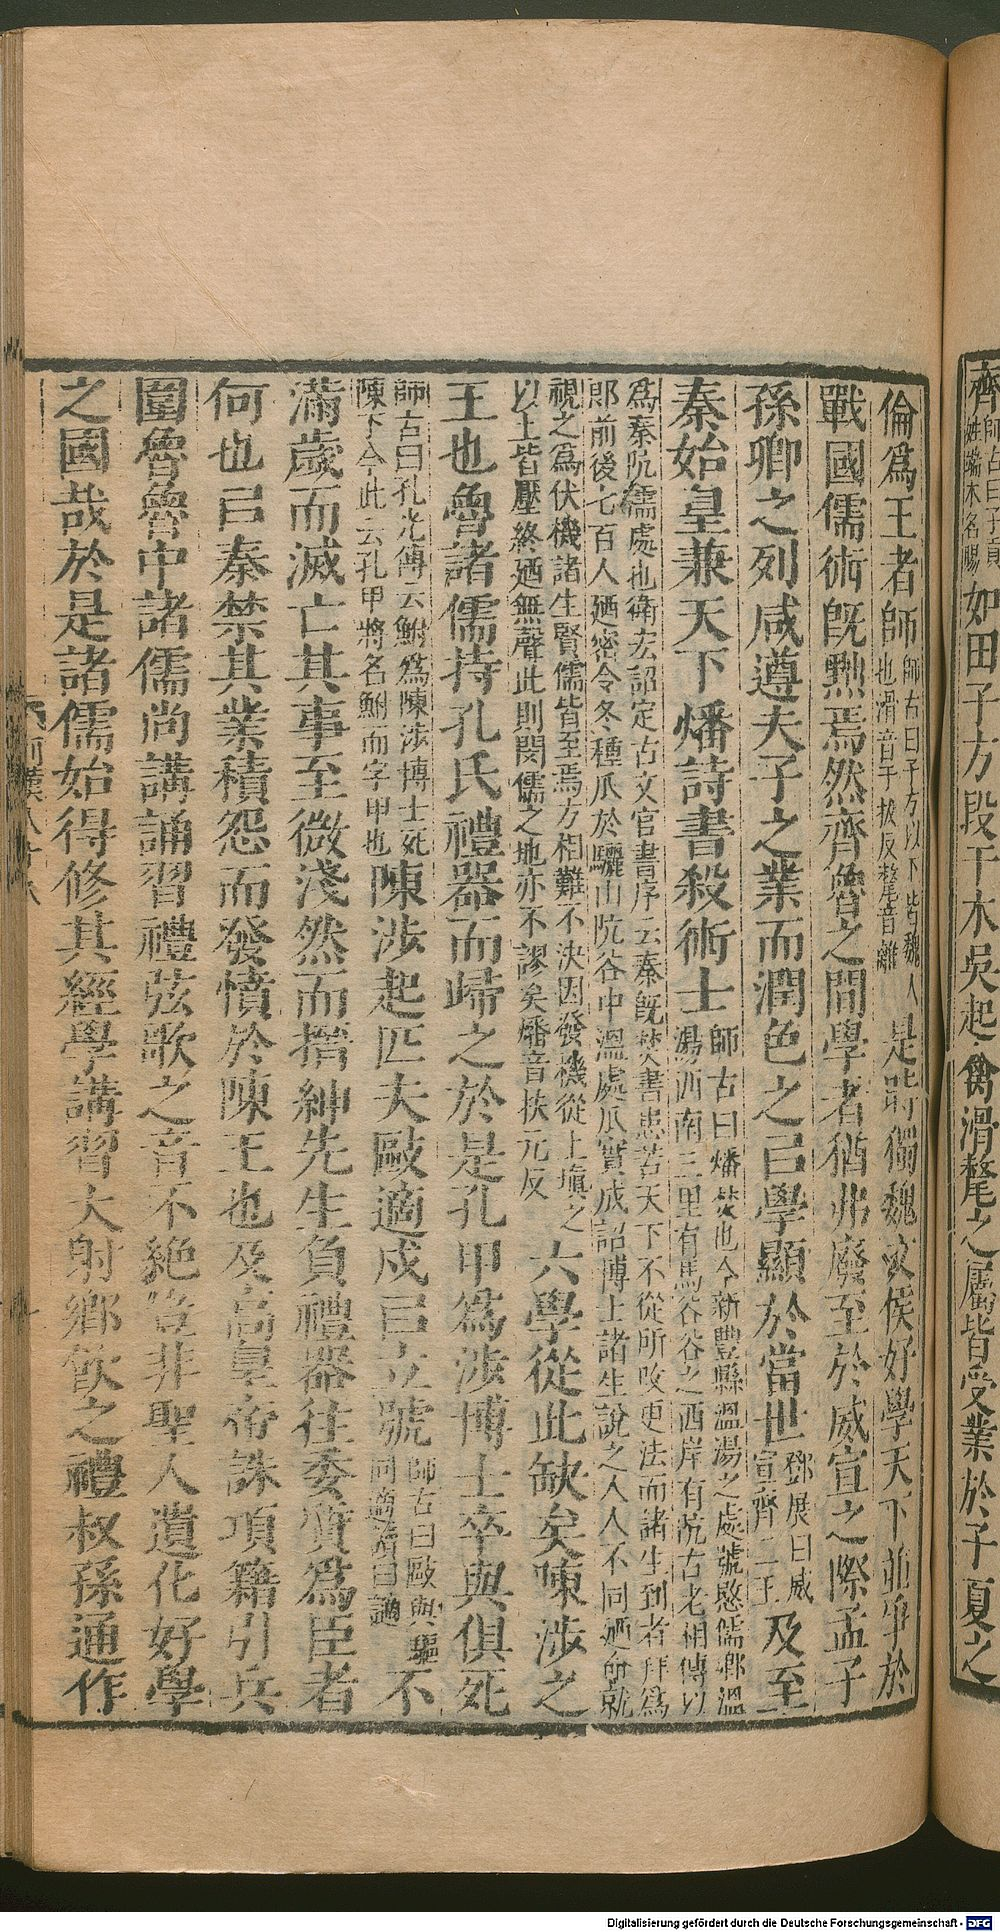 齊師古曰子貢姓端木名賜如田子方段干木吳起禽滑氂之屬皆受業於子夏之
倫爲王者師師古曰子方以下皆魏人也滑音于拔反氂音離是時獨魏文侯好學天下並爭於
戰國儒術旣黜焉然齊魯之間學者猶弗廢至於威宣之際孟子
孫卿之列咸遵夫子之業而潤色之㠯學顯於當世鄧展曰威宣齊二王及至
秦始皇兼天下燔詩書殺術士師古曰燔焚也今新豐縣溫湯之處號愍儒鄉溫湯西南三里有馬谷谷之西岸有阬古老相傳以
爲秦阬儒處也衛宏詔定古文官書序云秦旣焚書患苦天下不從所改更法而諸生到者拜爲
郎前後七百人廼密令冬種瓜於驪山阬谷中溫處瓜實成詔博士諸生說之人人不同廼命就
視之爲伏機諸生賢儒皆至焉方相難不決因發機從上塡之以土皆壓終廼無聲此則閔儒之地亦不謬矣燔音扶元反六學從此缺矣陳涉之
王也魯諸儒持孔氏禮器而歸之於是孔甲爲涉博士卒與俱死
師古曰孔光傳云鮒爲陳涉博士死陳下今此云孔甲將名鮒而字甲也陳涉起匹夫敺適戍㠯立號師古曰敺與驅同適讀曰謫不
滿歲而滅亡其事至微淺然而搢紳先生負禮器往委質爲臣者
何也㠯秦禁其業積怨而發憤於陳王也及高皇帝誅項籍引兵
圍魯魯中諸儒尚講誦習禮弦歌之音不絶豈非聖人遺化好學
之國哉於是諸儒始得修其經學講習大射鄉飲之禮叔孫通作
前漢八十八
Digitalisierung gefördert durch die Deutsche Forschungsgemeinschaft - DFG